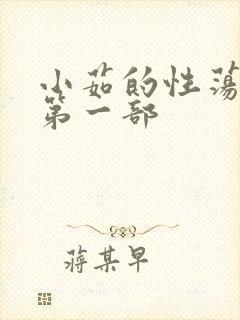 小茹的性荡
第一部
蒋某早